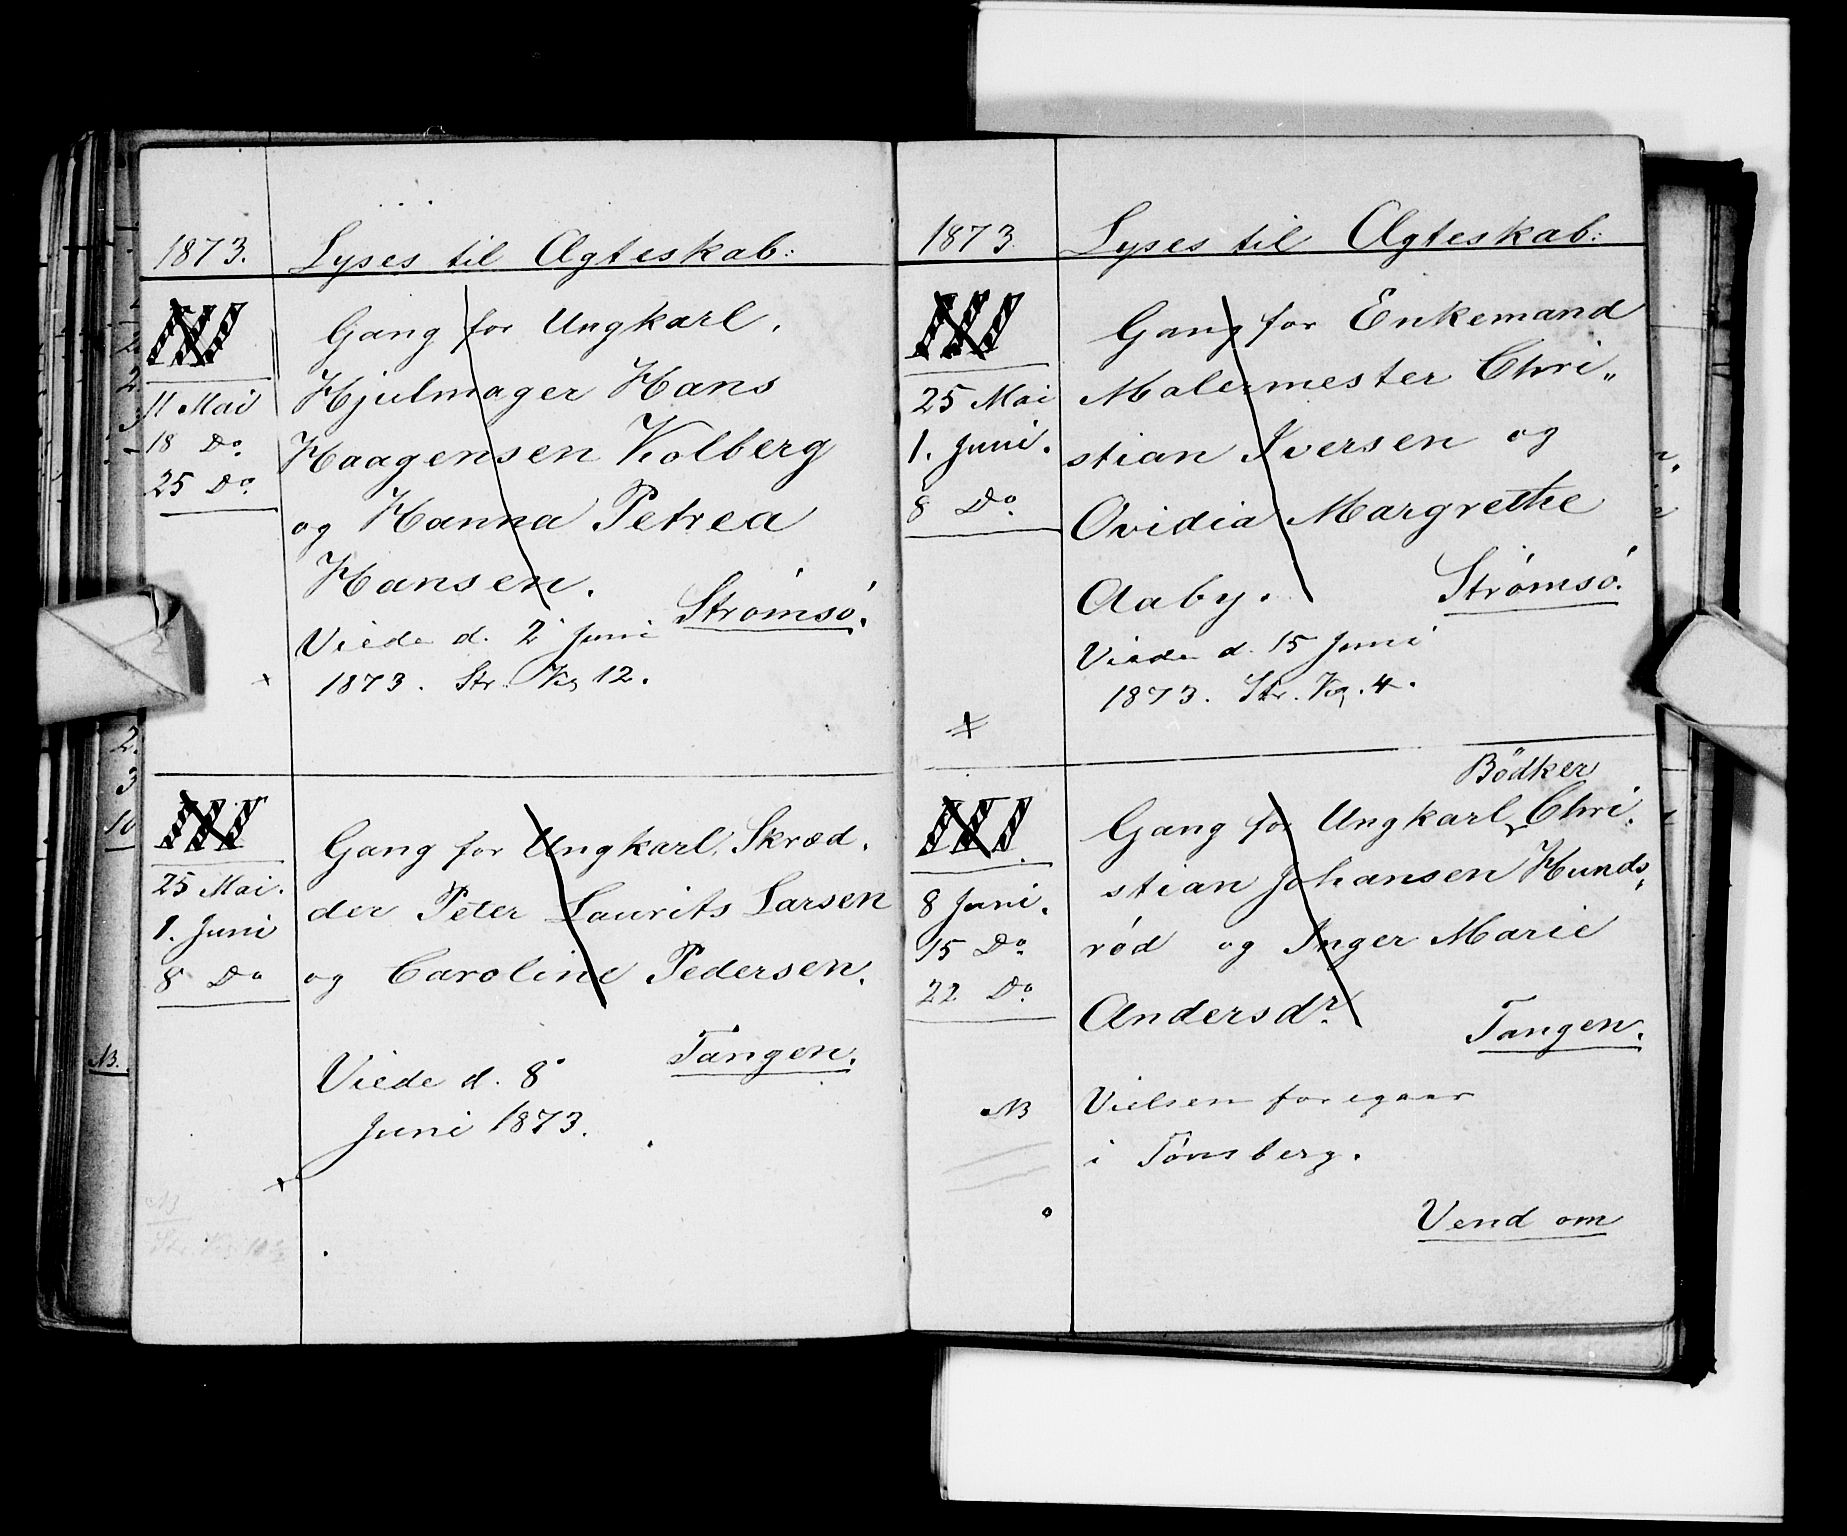 1873. Lyses til Ægteskab:
III
11 Mai
18 Do
25 Do
Gang for Ungkarl,
Hjulmager Hans
Haagensen Kolberg
og Hanna Petrea
Hansen.
Strømsö.
Viede d. 2 Juni
1873. Str. Kg 12.
III
25 Mai.
1. Juni
8 Do
Gang for Ungkarl, Skræd,
der Peter Laurits Larsen
og Caroline Pedersen.
Tangen.
Viede d. 8
Juni 1873.
1873. Lyses til Ægteskab:
III
25 Mai
1. Juni.
8 Do
Gang for Enkemand
Malermester Chri„
stian Iversen og
Ovidia Margrethe
Aaby.
Strømsö.
Viede d. 15 Juni
1873. Str. Kg. 4.
III
8 Juni.
15 Do
22 Do
Bödker
Gang for Ungkarl, Chri„
stian Johansen Hunds„
röd og Inger Marie
Andersdr.
Tangen.
NB Vielsen foregaar
i Tönsberg.
Vend om
2.
3
10
NB.